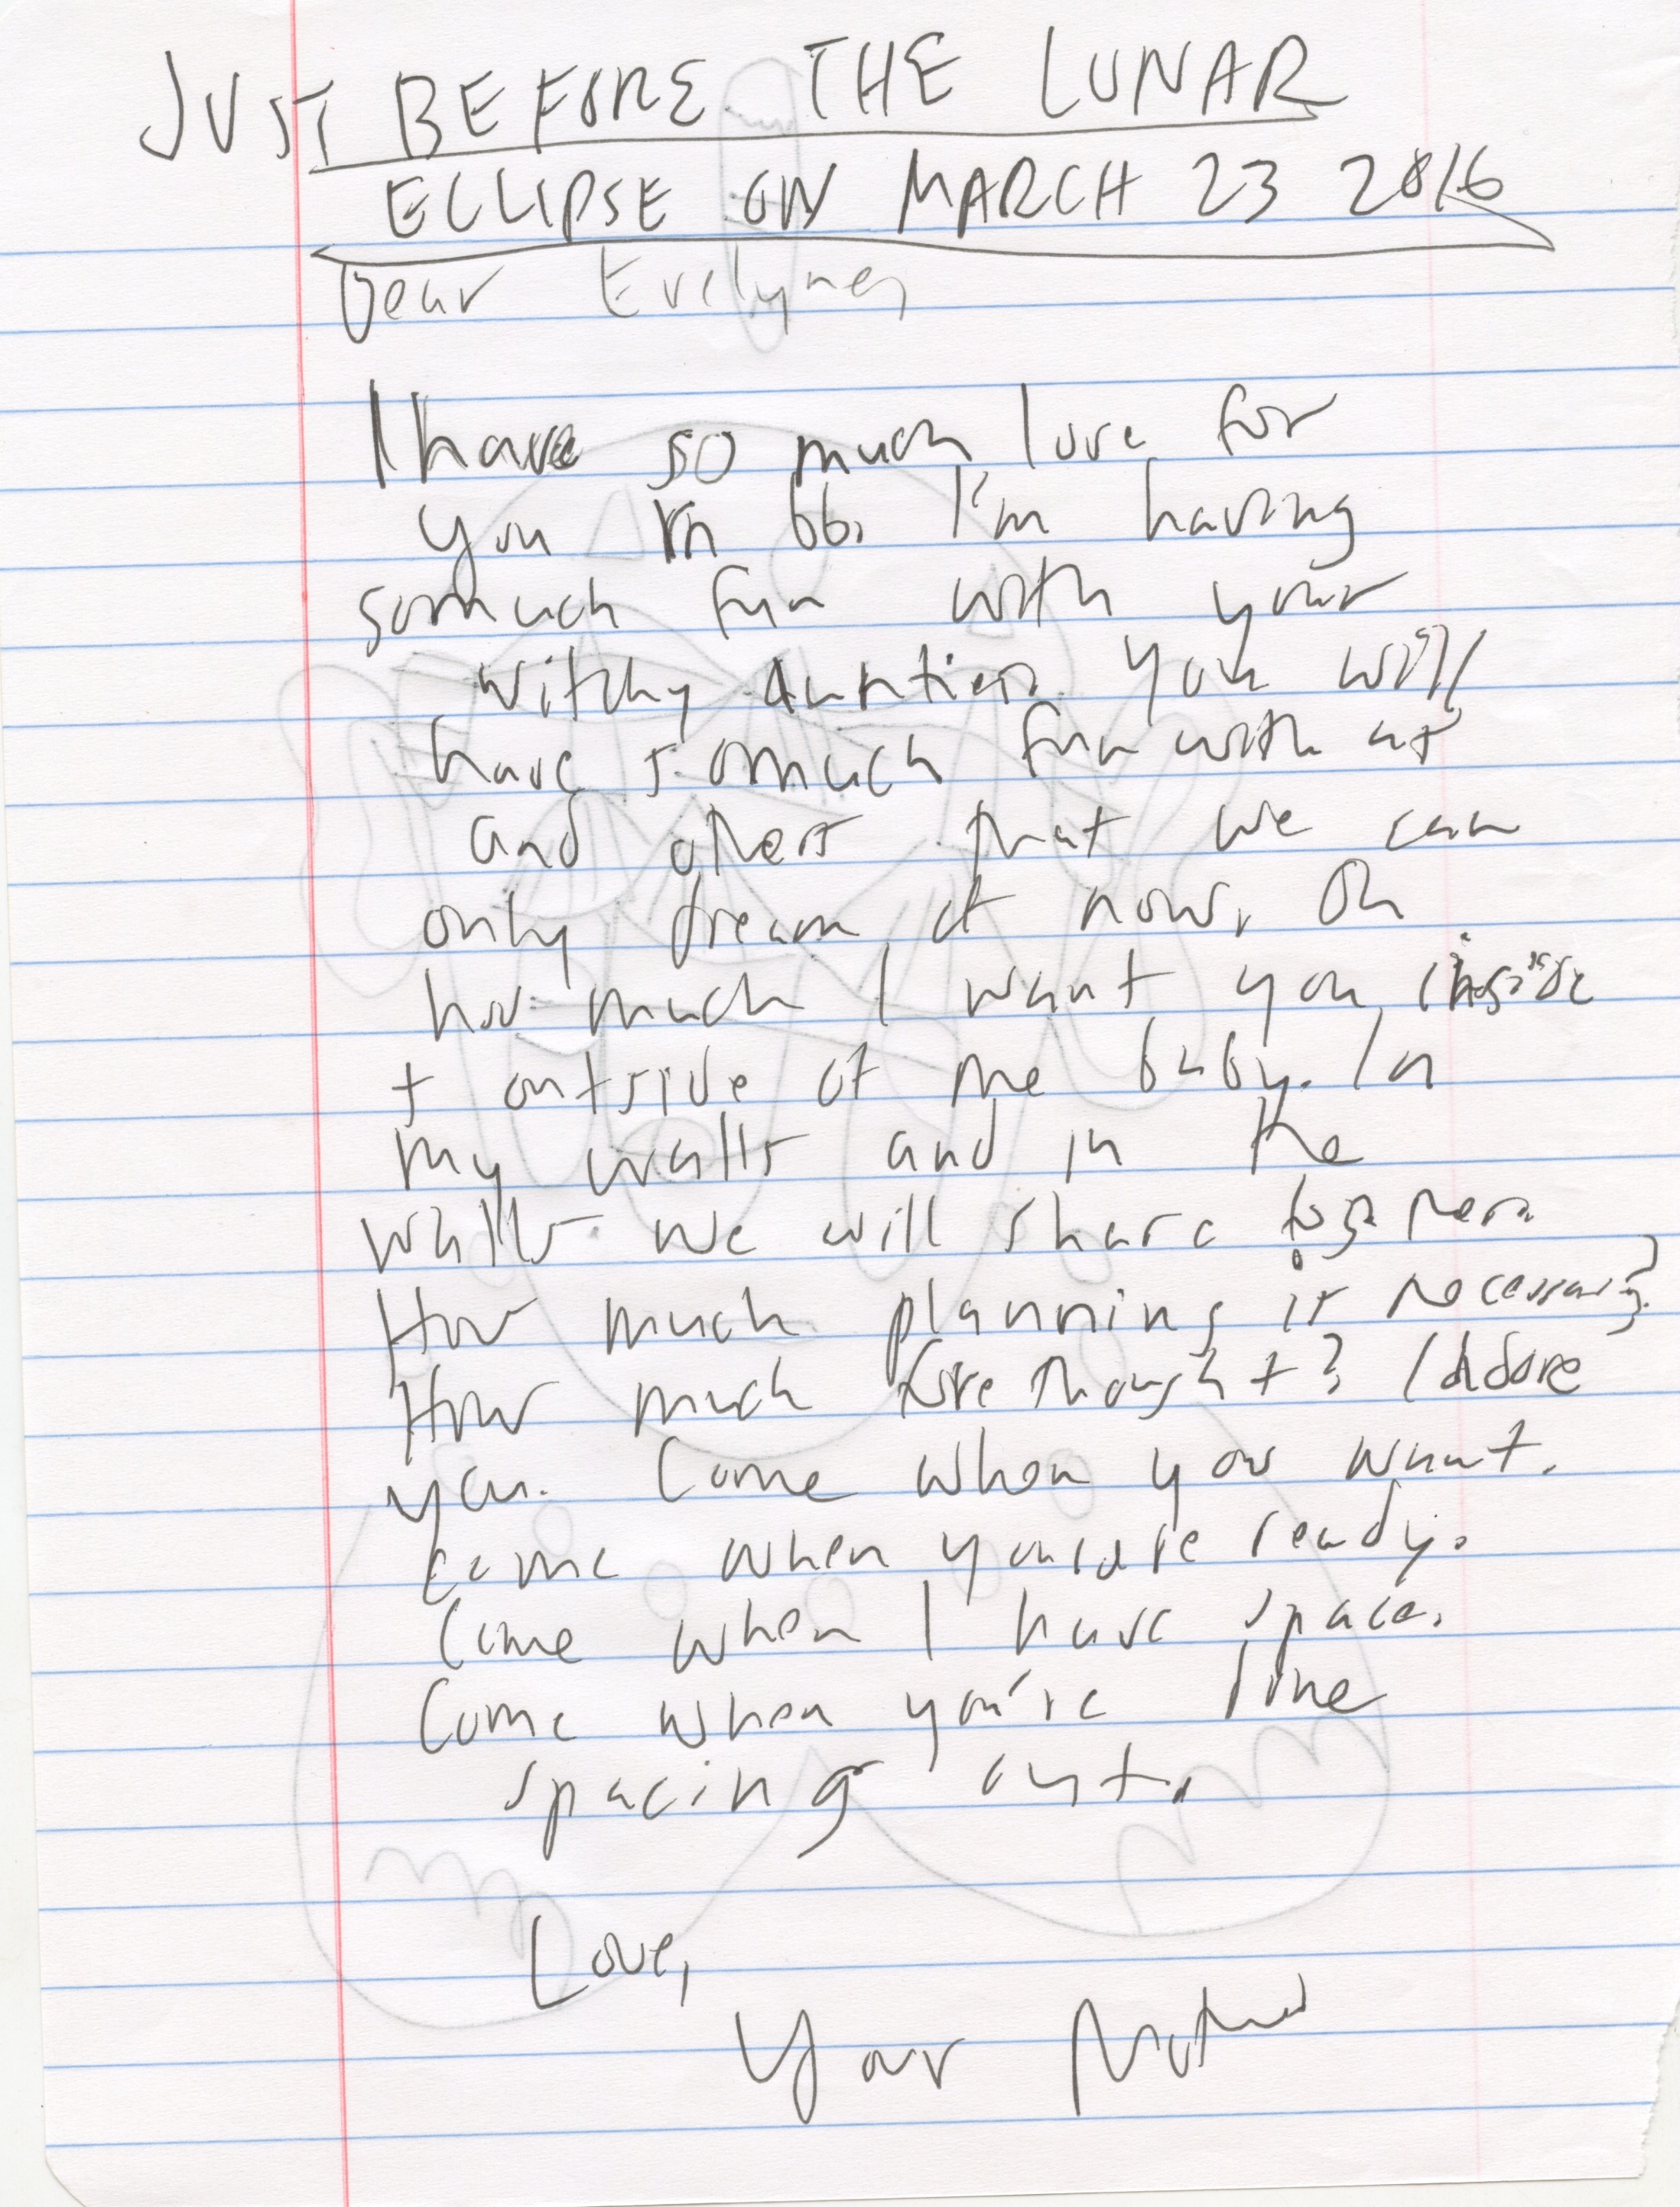 JUST BEFORE THE LUNAR
ECLIPSE ON MARCH 23 2016
Dear Evelyne,
I have so much love for
you rn bb. I'm having
somuch fun with your
witchy aunties. You will
have somuch fun with us
and others that we can
only dream of now. Oh
how much I want you inside
+ outside of me baby. In
my walls and in the
walls we will share together.
How much planning is necessary?
How much forethought? I adore
you. Come when you want.
Come when you are ready.
Come when I have space.
Come when you're done
spacing out.
Love,
Your Mother